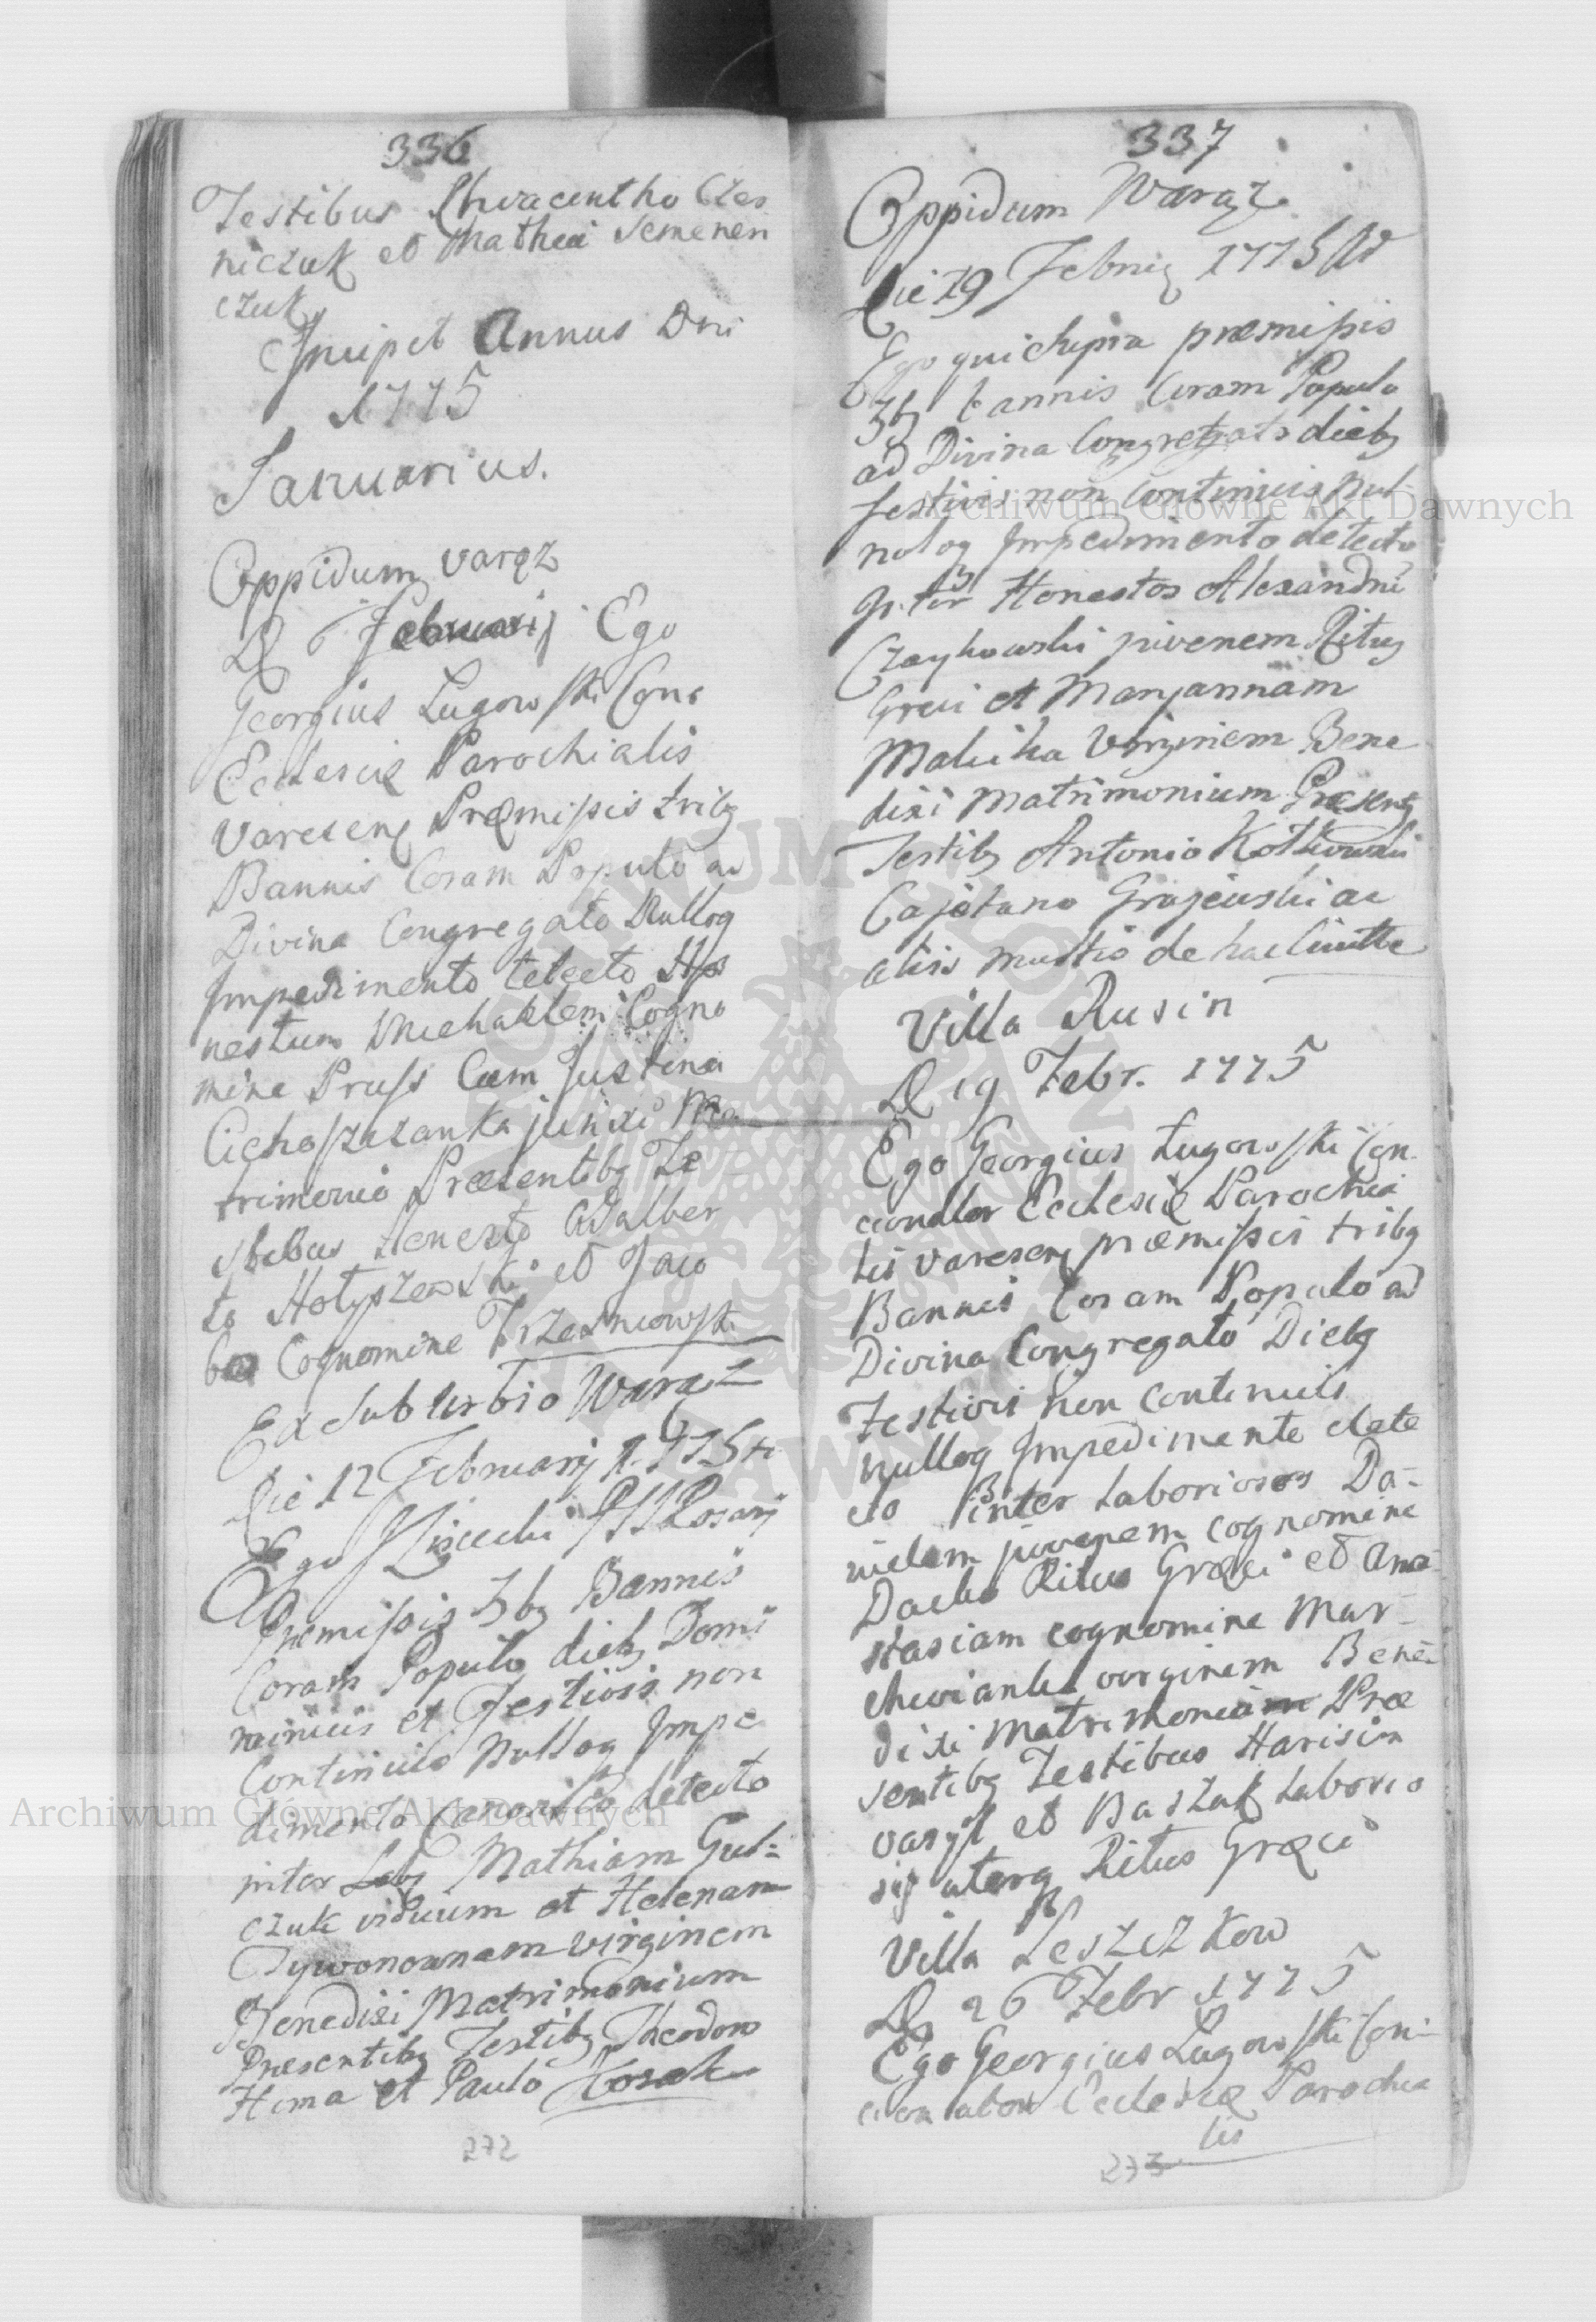 336
Testibus Chvacentho Czes
niczuk et Mathei Semenen
czuk
Incipit Annus Dni
1775
Januarius.
Oppidum Varęż
D 6 Februarij Ego
Georgius Lugowski Conc
Eclesiæ Parochialis
Varesens Præmissis tribq
Bannis Coram Populo ad
Divina Congregato Nulloq
Impedimento detecto Ho
nestum Michaelem Cogno
mine Pruss Cum Justina
Cichoszezanka junxi Ma
trimonio Præsentibq Te
stibus Honesto Adalber
to Hołyszewski et Jaco
bo Cognomine Trzesniowski
Ex Suburbio Waręż
Die 12 Februarij 1775 to
Ego PSS Rosarij
Præmissis 3bq Bannis
Coram Populo diebq Domi
nicis et Festivis non
Continuis Nulloq Impe
dimento Canonico detecto
inter Labq Mathiam Gul=
czuk viduum et Helenam
Tywonownam virginem
Benedixi Matrimonium
Præsentibq Testibq Theodoro
Homa et Paulo Kosak
272
337
Oppidum Waręż
Die 19 Febrij 1775
Ego qui supra præmissis
3bq bannis Coram Populo
ad Divina Congregato diebq
festivis non Continuis nul
noloq Impedimento detecto
Inter Honestos Alexandru
Czaykowski juvenem Ritus
Græci et Maryannam
Malicka Virginem Bene
dixi Matrimonium Præsentq
Testibq Antonio Kotkowski
Cajetano Grajewski ac
aliis multis de hac Civitte
Villa Rusin
D 19 Febr. 1775
Ego Georgius Ługowski Con
cionator Ecclesiæ Parochia
lis Varesens præmissis tribq
Bannis Coram Populo ad
Divina Congregato Diebq
Festivis non Continuis
nulloq Impedimento dete
cto inter Laboriosos Da-
nielem juvenem cognomine
Dacko Ritus Græci et Ana-
stasiam cognomine Mar-
chwianka virginem Bene-
dixi Matrimonium Præ
sentibq Testibus Harisim
Vasyl et Baszuk Laborio
sis uterq Ritus Græci
Villa Leszczkow
D 26 Febr 1775
Ego Georgius Lugowski Con-
cionator Ecclesiæ Parochia
lis
273
Archiwum Główne Akt Dawnych
Archiwum Główne Akt Dawnych
ARCHIWUM GŁÓWNE AKT DAWNYCH